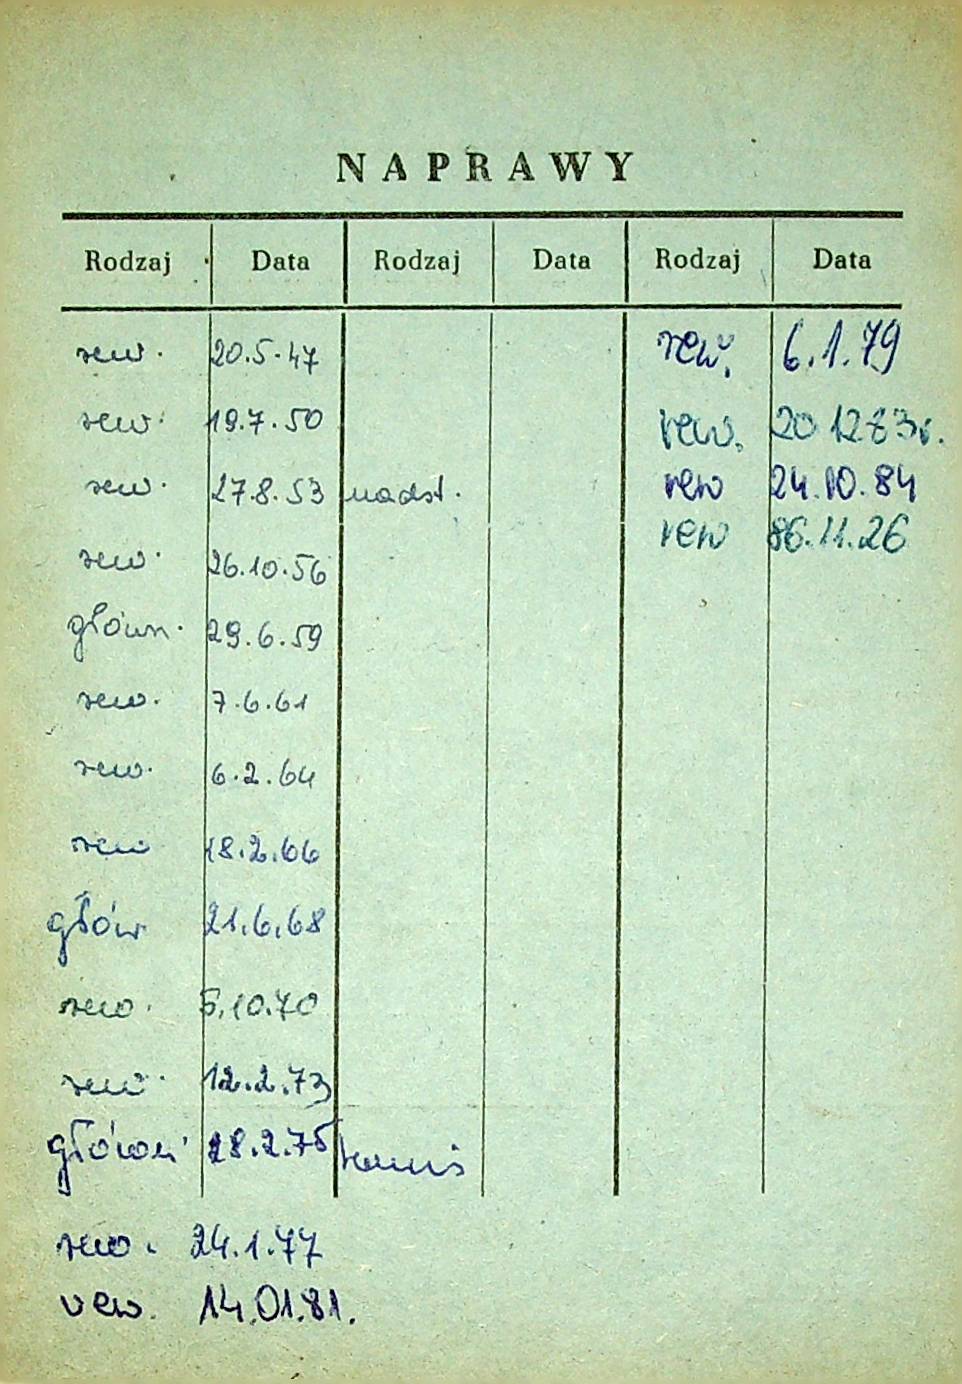 NAPRAWY
Rodzaj Data Rodzaj Data Rodzaj Data
rew. 20.5.47 rew. 6.1.79
rew. 19.7.50 rew. 20 12 83r.
rew. 27.8.53 nadst. rew 24.10.84
rew 86.11.26
rew. 26.10.56
główn. 29.6.59
rew. 7.6.61
rew. 6.2.64
rew 18.2.66
głów 21.6.68
rew. 5.10.70
rew. 12.2.73
główn. 28.2.75
rew. 24.1.77
rew. 14.01.81.